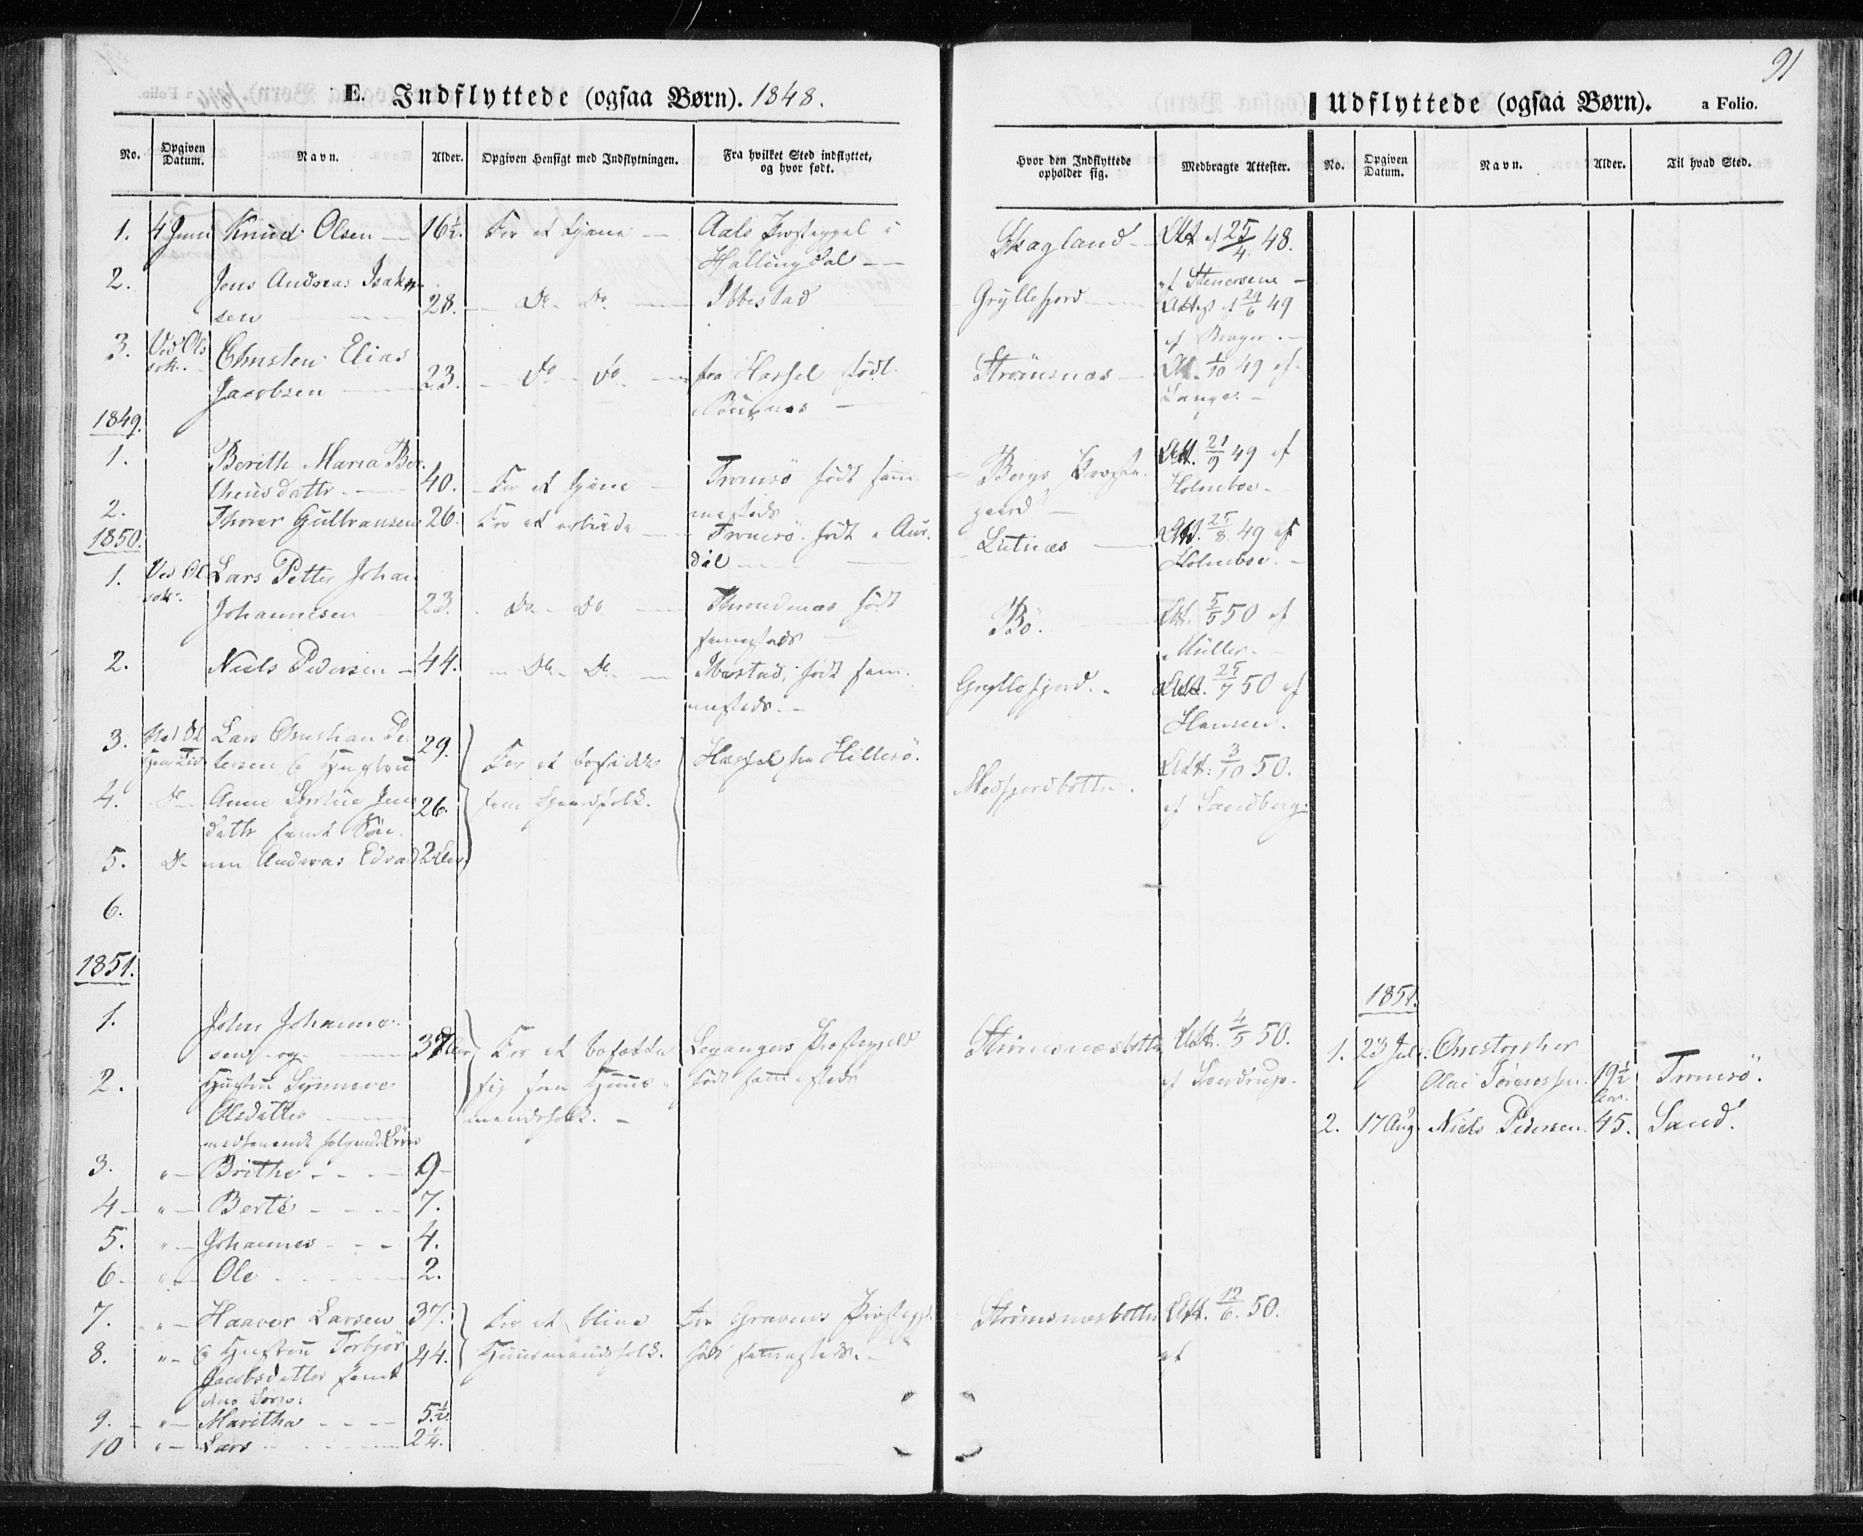 91
E. Indflyttede (ogsaa Børn). 1848.
Udflyttede (ogsaa Børn). a Folio.
No. Opgiven Datum. Navn. Alder. Opgiven Hensigt med Indflytningen. Fra hvilket Sted indflyttet, og hvor født.
Hvor den Indflyttede opholder sig. Medbragte Attester. No. Opgiven Datum. Navn. Alder. Til hvad Sted.
1. 4 Juni Knud Olsen 16½. For at tjene Aals Præstegjel i Skagland Att. af 25/4 48.
Hallingdal
2. Jens Andreas Isak- af Stenersene
sen 28. Do Do Ibbestad Gryllefjord 49
3. Ved Ols- Christen Elias af
sok. Jacobsen 23. Do Do fra Hassel født Strömsnæs Att. 1/10 49 af
Lange.
1849.
1. Berith Maria Ber- Att. 21/9 49 af
theusdatter 40. For at tjene Tromsö født sam- Bergs Præste- Holmboe
mesteds gaard
2. Thorer Gulbransen 26. For at arbeide Tromsö. født Aur- Lutnæs Att. 25/8 49 af
1850. dal Holmboe.
1. Ved Ol- Lars Petter Johan
sok. Johannesen 23. Do Do Throndenæs født Bö. Att. 5/5 50 af
samesteds Müller.
2. Niels Pedersen 44. Do Do Ibestad, født sam- Gryllefjord. Att. 25/7 50 af
mesteds. Hansen.
3. Ved Ol- Lars Christian Pe- 29.
tersen & Hustru For at bosidde Hassel fra Hillesö. Att: 3/10 50.
4. Do Anne Jens 26. som Gaardfolk. Medfjordbotten. af Sandberg.
datter samt Søn-
5. Do nen Andreas Edvard 2 Aar
6.
1851.
1851.
1. John Johanne-
sen og 37 Aar For at bosætte Leganger Præstegjeld Strömsnæsbotten Att. 4/5 50. 1. 23 Juli Christopher
2. Hustru Synneve sig som Huus- født sammesteds af Sverdrup. Olai 19½ Aar. Tromsö.
Olsdatter mandsfolk. 2. 17 Aug. Niels Pedersen. 45. Sand.
medhavende følgende Börn
3. " Brithe 9
4 " Berte 7.
5. " Johannes 4.
6 " Ole 2.
7. " Haaver Larsen 37. For at blive fra Gravens Præstegj. Strömsnæsbotten Att. 12/6 50.
8. " & Hustru Torbjör 44. Huusmandsfolk. født sammesteds. af
Jacobsdatter samt
Börn:
9. " Maritha 5½
10 " Lars 2¼.